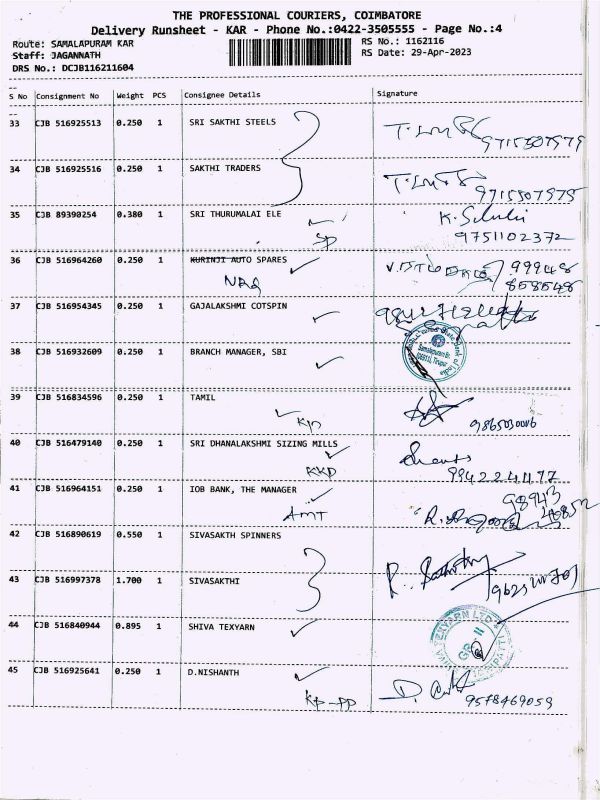 THE PROFESSIONAL COURIERS, COIMBATORE
Delivery Runsheet - KAR - Phone No.:0422-3505555 - Page No.:4
Route: SAMALAPURAM KAR
RS No.: 1162116
Staff: JAGANNATH
RS Date: 29-Apr-2023
DRS No.: DCJB116211604
S No Consignment No Weight PCS Consignee Details Signature
33 CJB 516925513 0.250 1 SRI SAKTHI STEELS
9715307979
34 CJB 516925516 0.250 1 SAKTHI TRADERS
9715307979
35 CJB 89390254 0.380 1 SRI THURUMALAI ELE
SP
9751102372
36 CJB 516964260 0.250 1 KURINJI AUTO SPARES
99948
858548
37 CJB 516954345 0.250 1 GAJALAKSHMI COTSPIN
38 CJB 516932609 0.250 1 BRANCH MANAGER, SBI
39 CJB 516834596 0.250 1 TAMIL
40 CJB 516479140 0.250 1 SRI DHANALAKSHMI SIZING MILLS
KKP
9942224177
41 CJB 516964151 0.250 1 IOB BANK, THE MANAGER
AMT
98943
42 CJB 516890619 0.550 1 SIVASAKTH SPINNERS
43 CJB 516997378 1.700 1 SIVASAKTHI
44 CJB 516840944 0.895 1 SHIVA TEXYARN
45 CJB 516925641 0.250 1 D.NISHANTH
9578469059